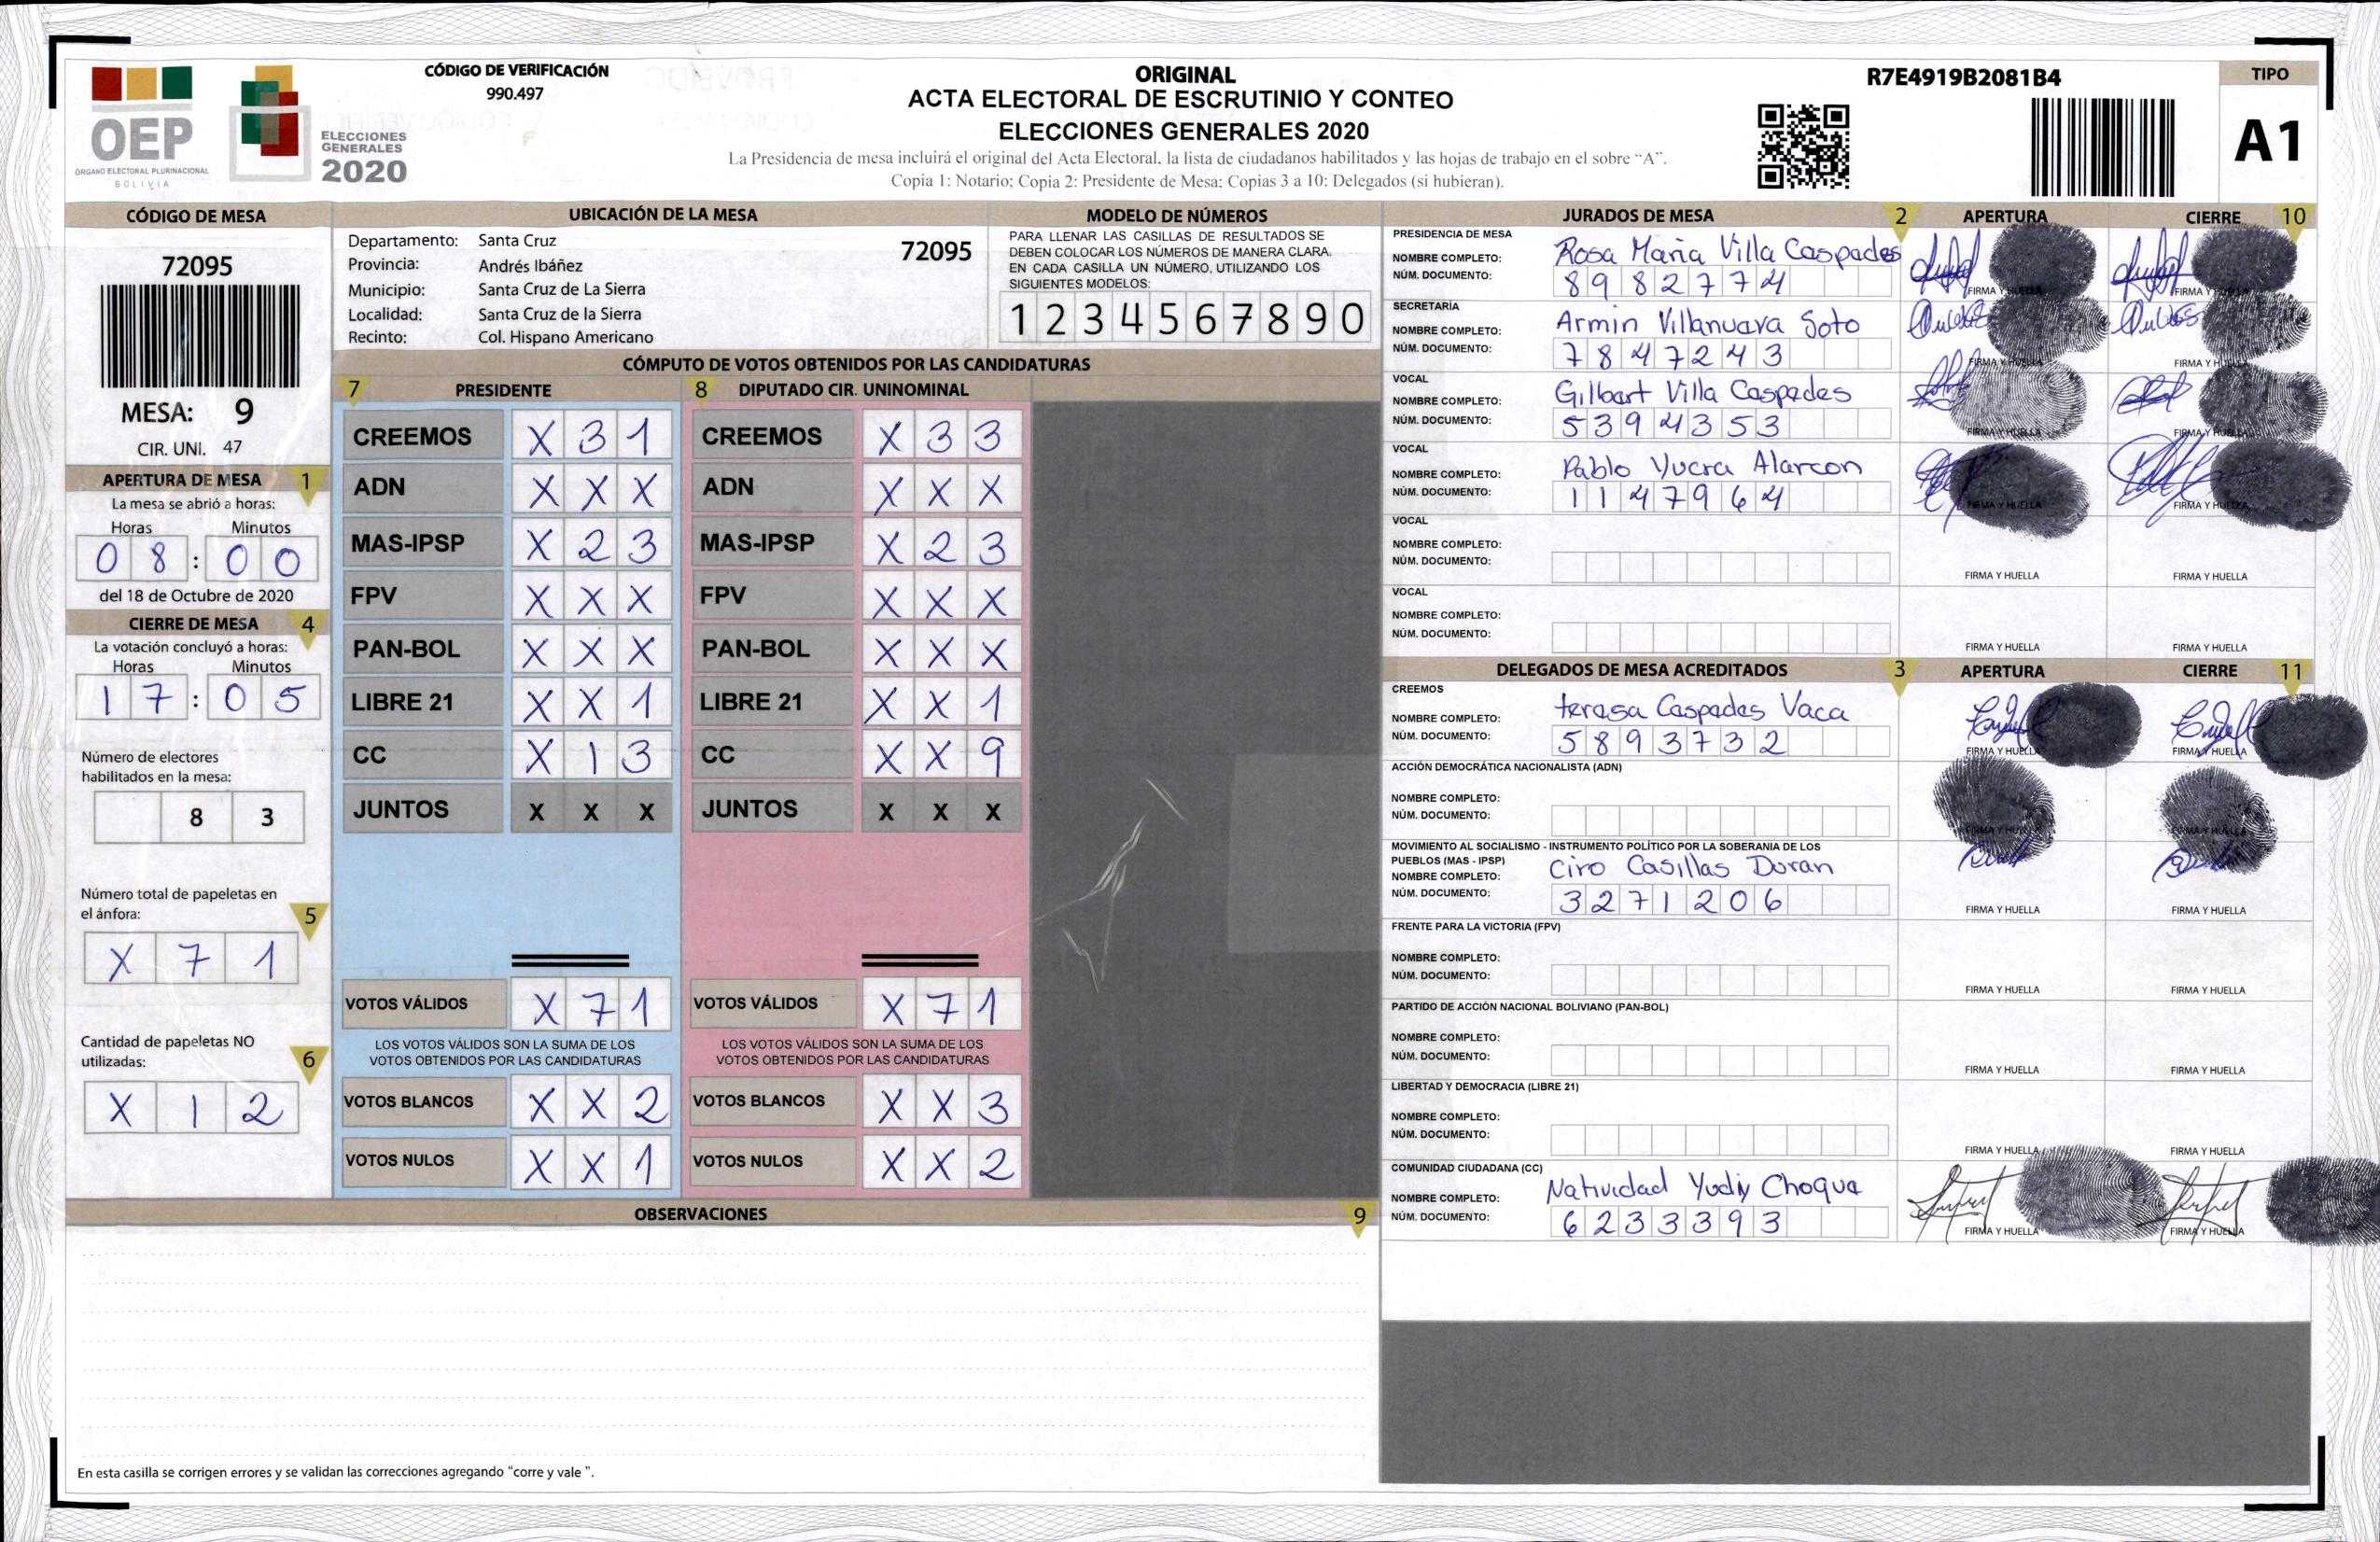 OEP
ÓRGANO ELECTORAL PLURINACIONAL
BOLIVIA
ELECCIONES
GENERALES
2020
CÓDIGO DE VERIFICACIÓN
990.497
ORIGINAL
ACTA ELECTORAL DE ESCRUTINIO Y CONTEO
ELECCIONES GENERALES 2020
La Presidencia de mesa incluirá el original del Acta Electoral, la lista de ciudadanos habilitados y las hojas de trabajo en el sobre "A".
Copia 1: Notario; Copia 2: Presidente de Mesa; Copias 3 a 10: Delegados (si hubieran).
R7E4919B2081B4
TIPO
A1
CÓDIGO DE MESA
72095
MESA: 9
CIR. UNI. 47
APERTURA DE MESA 1
La mesa se abrió a horas:
Horas Minutos
0 8 : 0 0
del 18 de Octubre de 2020
CIERRE DE MESA 4
La votación concluyó a horas:
Horas Minutos
1 7 : 0 5
Número de electores
habilitados en la mesa:
8 3
Número total de papeletas en
el ánfora: 5
X 7 1
Cantidad de papeletas NO
utilizadas: 6
X 1 2
UBICACIÓN DE LA MESA
Departamento: Santa Cruz 72095
Provincia: Andrés Ibáñez
Municipio: Santa Cruz de La Sierra
Localidad: Santa Cruz de la Sierra
Recinto: Col. Hispano Americano
MODELO DE NÚMEROS
PARA LLENAR LAS CASILLAS DE RESULTADOS SE
DEBEN COLOCAR LOS NÚMEROS DE MANERA CLARA,
EN CADA CASILLA UN NÚMERO, UTILIZANDO LOS
SIGUIENTES MODELOS:
1 2 3 4 5 6 7 8 9 0
CÓMPUTO DE VOTOS OBTENIDOS POR LAS CANDIDATURAS
7 PRESIDENTE 8 DIPUTADO CIR. UNINOMINAL
CREEMOS X 3 1 CREEMOS X 3 3
ADN X X X ADN X X X
MAS-IPSP X 2 3 MAS-IPSP X 2 3
FPV X X X FPV X X X
PAN-BOL X X X PAN-BOL X X X
LIBRE 21 X X 1 LIBRE 21 X X 1
CC X 1 3 CC X X 9
JUNTOS X X X JUNTOS X X X
VOTOS VÁLIDOS X 7 1 VOTOS VÁLIDOS X 7 1
LOS VOTOS VÁLIDOS SON LA SUMA DE LOS LOS VOTOS VÁLIDOS SON LA SUMA DE LOS
VOTOS OBTENIDOS POR LAS CANDIDATURAS VOTOS OBTENIDOS POR LAS CANDIDATURAS
VOTOS BLANCOS X X 2 VOTOS BLANCOS X X 3
VOTOS NULOS X X 1 VOTOS NULOS X X 2
OBSERVACIONES 9
En esta casilla se corrigen errores y se validan las correcciones agregando "corre y vale ".
JURADOS DE MESA 2 APERTURA CIERRE 10
PRESIDENCIA DE MESA
NOMBRE COMPLETO: Rosa Maria Villa Caspedes
NÚM. DOCUMENTO: 8 9 8 2 7 7 4
FIRMA Y HUELLA FIRMA Y
SECRETARÍA
NOMBRE COMPLETO: Armin Villanuava Soto
NÚM. DOCUMENTO: 7 8 4 7 2 4 3
FIRMA Y FIRMA Y HUELLA
VOCAL
NOMBRE COMPLETO: Gilbart Villa Caspedes
NÚM. DOCUMENTO: 5 3 9 4 3 5 3
FIRMA Y HUELLA FIRMA Y HUELLA
VOCAL
NOMBRE COMPLETO: Pablo Yucra Alarcon
NÚM. DOCUMENTO: 1 1 4 7 9 6 4
FIRMA Y HUELLA FIRMA Y HUELLA
VOCAL
NOMBRE COMPLETO:
NÚM. DOCUMENTO:
FIRMA Y HUELLA FIRMA Y HUELLA
VOCAL
NOMBRE COMPLETO:
NÚM. DOCUMENTO:
FIRMA Y HUELLA FIRMA Y HUELLA
DELEGADOS DE MESA ACREDITADOS 3 APERTURA CIERRE 11
CREEMOS
NOMBRE COMPLETO: terasa Caspadas Vaca
NÚM. DOCUMENTO: 5 8 9 3 7 3 2
FIRMA Y HUELLA FIRMA Y HUELLA
ACCIÓN DEMOCRÁTICA NACIONALISTA (ADN)
NOMBRE COMPLETO:
NÚM. DOCUMENTO:
FIRMA Y HUELLA FIRMA Y HUELLA
MOVIMIENTO AL SOCIALISMO - INSTRUMENTO POLÍTICO POR LA SOBERANIA DE LOS
PUEBLOS (MAS - IPSP)
NOMBRE COMPLETO: Ciro Casillas Duran
NÚM. DOCUMENTO: 3 2 7 1 2 0 6
FIRMA Y HUELLA FIRMA Y HUELLA
FRENTE PARA LA VICTORIA (FPV)
NOMBRE COMPLETO:
NÚM. DOCUMENTO:
FIRMA Y HUELLA FIRMA Y HUELLA
PARTIDO DE ACCIÓN NACIONAL BOLIVIANO (PAN-BOL)
NOMBRE COMPLETO:
NÚM. DOCUMENTO:
FIRMA Y HUELLA FIRMA Y HUELLA
LIBERTAD Y DEMOCRACIA (LIBRE 21)
NOMBRE COMPLETO:
NÚM. DOCUMENTO:
FIRMA Y HUELLA FIRMA Y HUELLA
COMUNIDAD CIUDADANA (CC)
NOMBRE COMPLETO: Natividad Yudiy Choqua
NÚM. DOCUMENTO: 6 2 3 3 3 9 3
FIRMA Y HUELLA FIRMA Y HUELLA